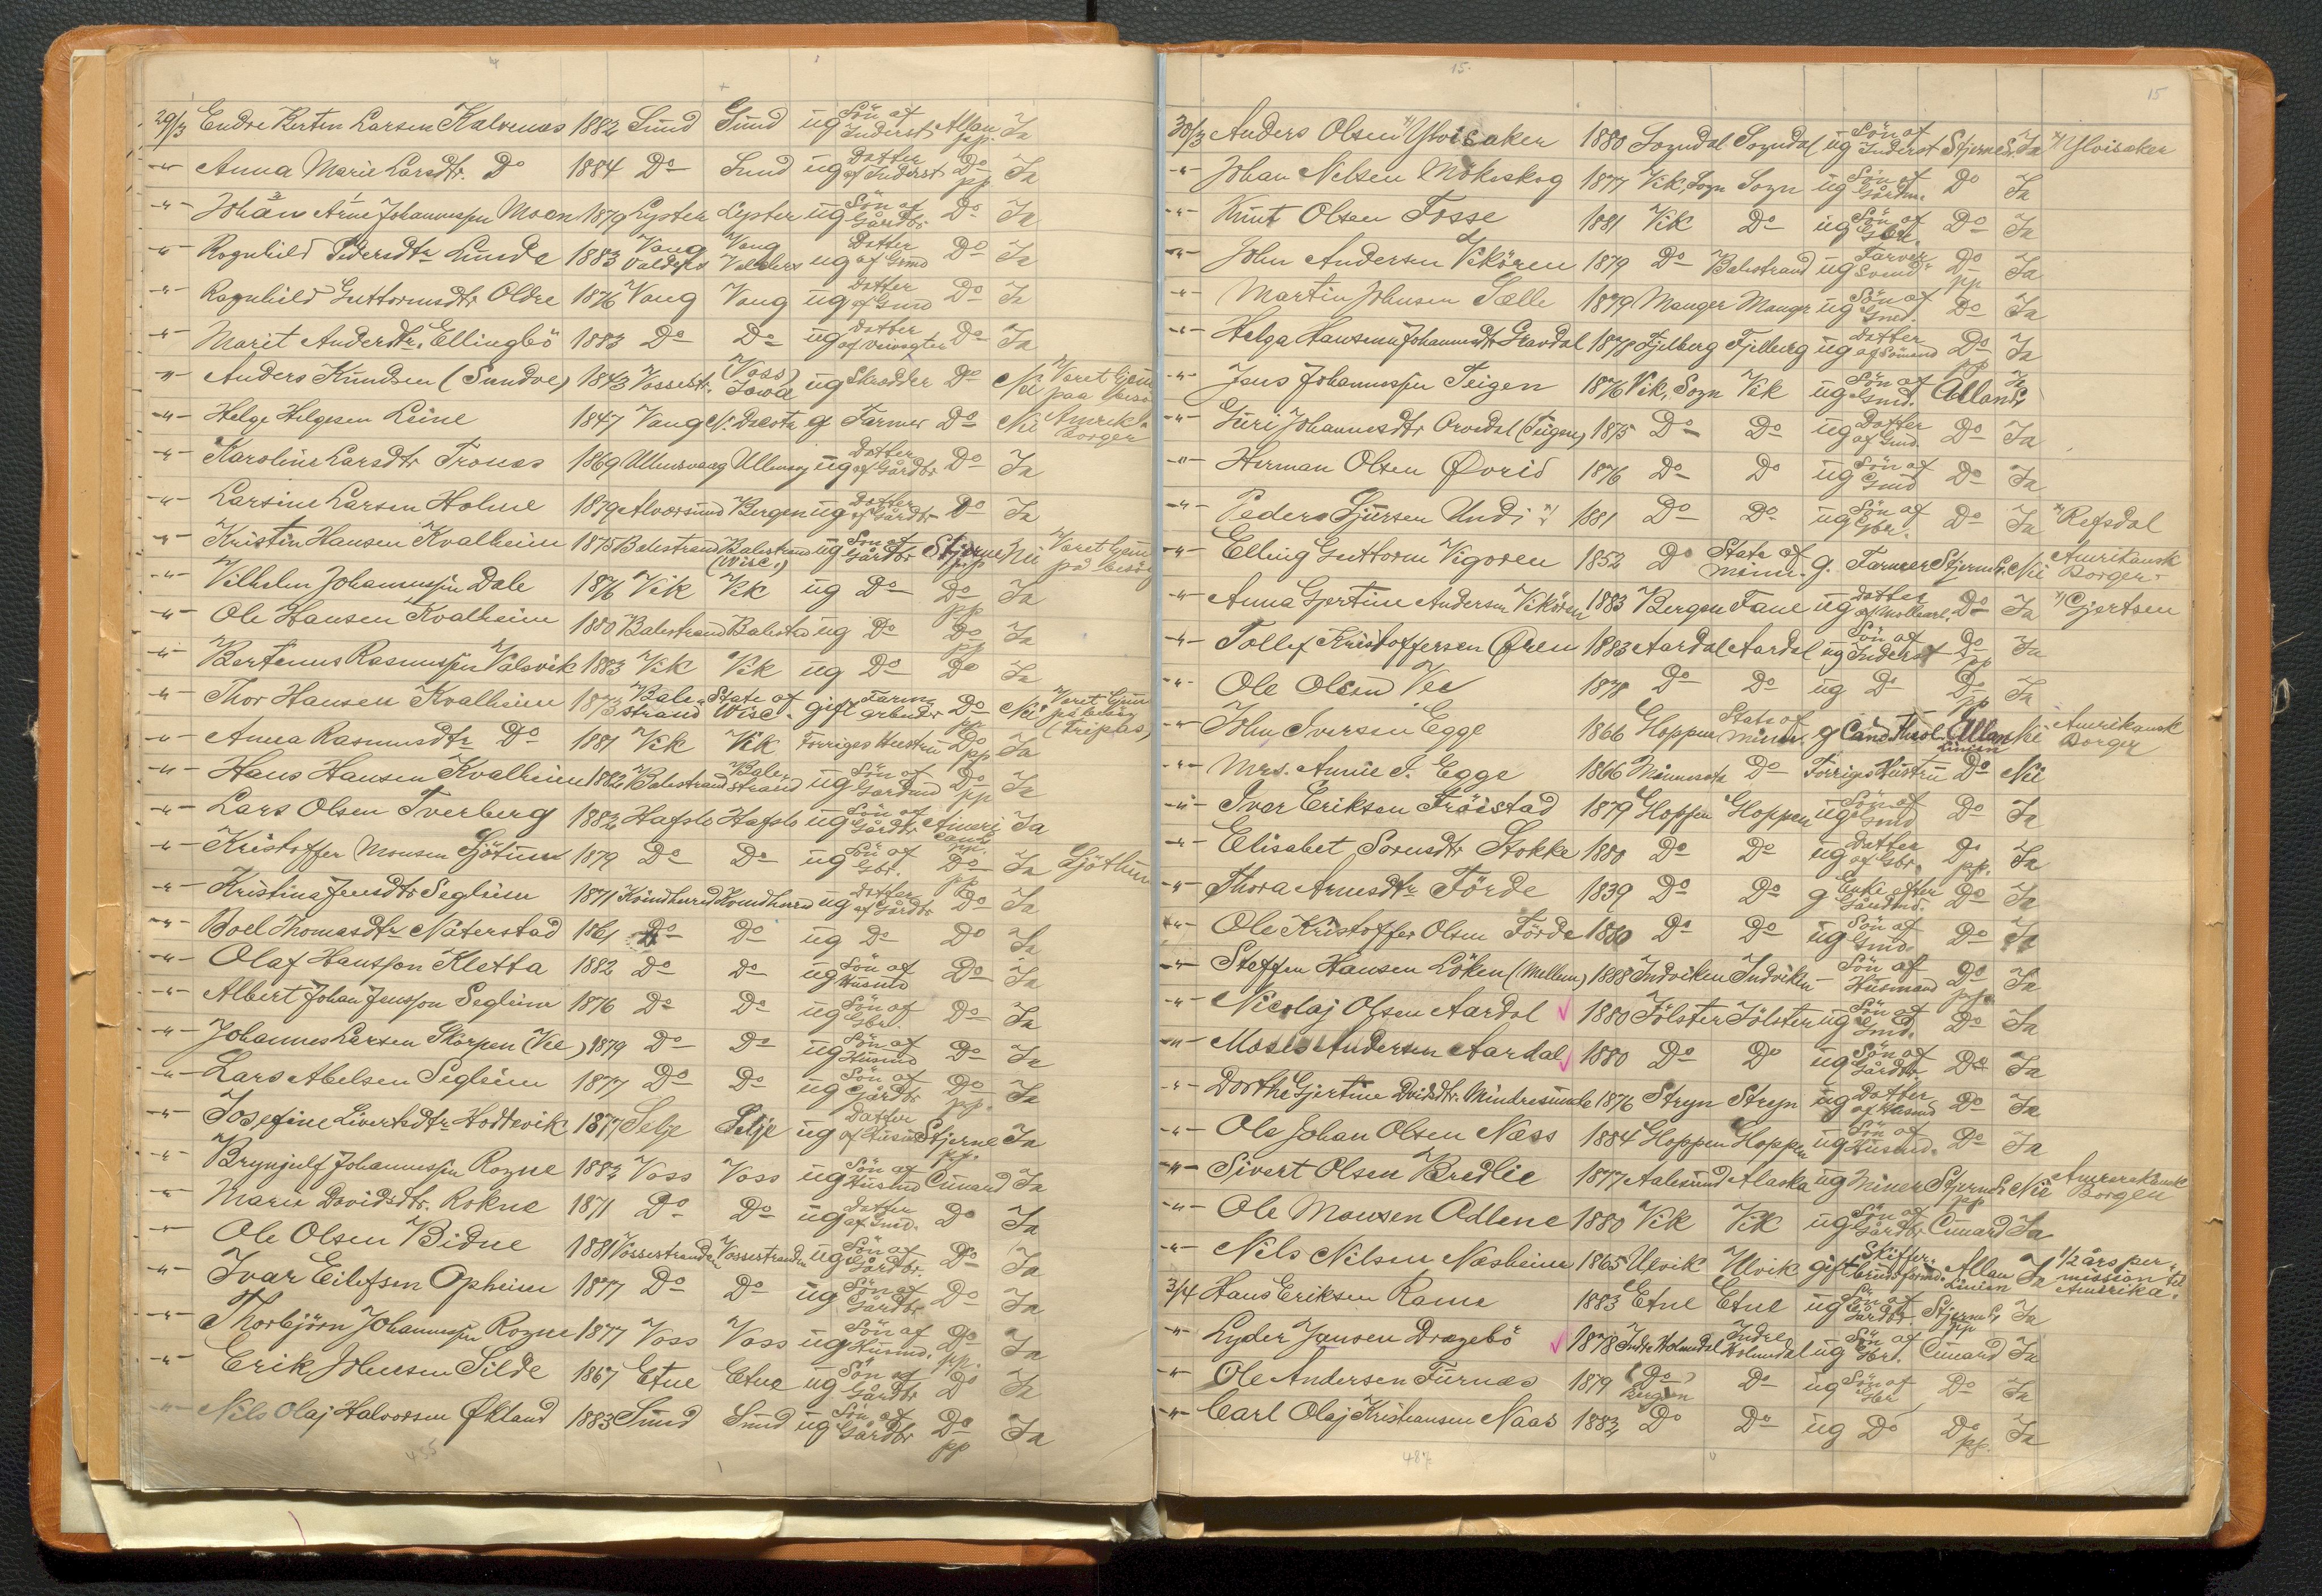 29/3 Endre Bertin Larsen Kalvenes 1882 Sund Sund ug Søn af Inderst Allan pp. Ja
-"- Anna Marie Larsdtr. Do 1884 Do Sund ug Datter af Inderst Do pp Ja
-"- Johan Arne Johannessen Moen 1879 Lyster Lyster ug Søn af Gårdbr. Do Ja
-"- Ragnhild Pedersdtr Lunde 1883 Vang Valders Vang Valders ug Datter af Gmd Do Ja
-"- Ragnhild Guttormsdtr Oldre 1876 Vang Vang ug Datter af Gmd Do Ja
-"- Marit Andersdtr. Ellingbö 1883 Do Do ug Datter af Veivogter Do Ja
-"- Anders Knudsen (Sundve) 1843 Vossestr. (Voss) Iowa ug Skrædder Do Nei Været hjem paa besøg
-"- Helge Helgesen Leine 1847 Vang N. Dacota g Farmer Do Nei Amerik. Borger
-"- Karoline Larsdtr Tronæs 1869 Ullensvang Ullensvg ug Datter af Gårdbr Do Ja
-"- Larsine Larsen Holme 1879 Alversund Bergen ug Datter af Gårdbr Do Ja
-"- Kristin Hansen Kvalheim 1875 Balestrand Balestrand (Wisc.) ug Søn af Gårdbr Stjerne pp Nei Været hjem på besøg
-"- Vilhelm Johannessen Dale 1876 Vik Vik ug Do Do pp Ja
-"- Ole Hansen Kvalheim 1880 Balestrand Balestra ug Do Do pp Ja
-"- Bertinus Rasmussen Valsvik 1883 Vik Vik ug Do Do Ja
-"- Thor Hansen Kvalheim 1873 Balestrand State of Wisc. gift Farmarbeider Do pp Nei Været hjem på besøg (Friplas)
-"- Anna Rasmusdtr Do 1881 Vik Vik Forriges Hustru Do pp Ja
-"- Hans Hansen Kvalheim 1882 Balestrand Balestrand ug Søn af Gardmd Do pp Ja
-"- Lars Olsen Tverberg 1882 Hafslo Hafslo ug Søn af Gårdbr American pp. Ja
-"- Kristoffer Monsen Gjötun 1879 Do Do ug Søn af Gbr. Do pp Ja Gjöthun
-"- Kristina Jensdtr Segleim 1871 Kvindherred Kvindherred ug Datter af Gårdbr Do Ja
-"- Boel Thomasdtr Naterstad 1861 Do Do ug Do Do Ja
-"- Olaf Hansson Kletta 1882 Do Do ug Søn af Husmd Do Ja
-"- Albert Johan Jensson Segleim 1876 Do Do ug Søn af Gbr. Do Ja
-"- Johannes Larsen Skorpen (Vee) 1879 Do Do ug Søn af Husmd Do Ja
-"- Lars Abelsen Segleim 1877 Do Do ug Søn af Gårdbr Do pp. Ja
-"- Josefine Sivertsdtr Hoddevik 1877 Selje Selje ug Datter af Husmd Stjerne pp. Ja
-"- Brynjulf Johannessen Rogne 1882 Voss Voss ug Søn af Husmd Cunard Ja
-"- Marie Davidsdtr. Rokne 1871 Do Do ug Datter af Gmd. Do Ja
-"- Ole Olsen Bidne 1881 Vossestranden Vossestranden ug Søn af Gårdbr. Do Ja
-"- Ivar Eilefsen Opheim 1877 Do Do ug Søn af Gårdbr. Do Ja
-"- Thorbjörn Johannessen Rogne 1877 Voss Voss ug Søn af Husmd. Do pp. Ja
-"- Erik Johnsen Silde 1867 Etne Etne ug Søn af Gårdbr Do Ja
-"- Nils Olaj Halvorsen Økland 1883 Sund Sund ug Søn af Gårdbr Do pp Ja
15
15
30/3 Anders Olsen x) Ylvisaker 1880 Sogndal Sogndal ug Søn af Inderst Stjernel. Ja x) Ylvisaker
-"- Johan Nilsen Mökeskog 1877 Vik, Sogn Sogn ug Søn af Gårdm. Do Ja
-"- Knut Olsen Fosse 1881 Vik Do ug Søn af Gbr. Do Ja
-"- John Andersen Vikören 1879 Do Balestrand ug Farversvend Do pp Ja
-"- Martin Johnsen Sælle 1879 Manger Manger ug Søn af Gmd. Do Ja
-"- Helga Hansine Johannesdtr Gravdal 1878 Fjelberg Fjelberg ug Datter af Sömand Do pp Ja
-"- Jens Johannessen Teigen 1876 Vik, Sogn Vik ug Søn af Gmd. Allanl. Ja
-"- Guri Johannesdtr Orvedal (Teigen) 1875 Do Do ug Datter af Gmd. Do Ja
-"- Herman Olsen Øvrid 1876 Do Do ug Søn af Gmd Do Ja
-"- Peder Sjursen Undi x) 1881 Do Do ug Søn af Gbr. Do Ja x) Refsdal
-"- Elling Guttorm Vigoren 1852 Do State of Minn. g. Farmer Stjernel. Nei Amrikansk Borger
-"- Anna Gjertine Andersen Vikören 1883 Bergen Fane ug Datter af Möllearb. Do Ja x) Gjertsen
-"- Tollef Kristoffersen Øren 1883 Aardal Aardal ug Søn af Inderst Do pp Ja
-"- Ole Olsen Vee 1878 Do Do ug Do Do pp Ja
-"- John Iversen Egge 1866 Gloppen State of Minn. g Cand. Theol. Allan Linien Nei Amrikansk Borger
-"- Mrs. Annie J. Egge 1866 Minnesota Do Forriges Hustru Do Nei
-"- Ivar Eriksen Fröistad 1879 Gloppen Gloppen ug Søn af Gmd Do Ja
-"- Elisabet Sorusdtr Stokke 1880 Do Do ug Datter af Gbr. Do pp. Ja
-"- Thora Arnesdtr Förde 1839 Do Do g Enke efter Gårdmd. Do Ja
-"- Ole Kristoffer Olsen Förde 1880 Do Do ug Søn af Gmd. Do Ja
-"- Steffen Hansen Löken (Mellem) 1888 Indviken Indviken - Søn af Husmand Do pp. Ja
-"- Nicolaj Olsen Aardal 1880 Jölster Jölster ug Søn af Gmd. Do Ja
-"- Moses Andersen Aardal 1880 Do Do ug Søn af Gårdbr. Do Ja
-"- Dorthe Gjertine Dvidsdtr. Mindresunde 1876 Stryn Stryn ug Datter af Husmd Do Ja
-"- Ole Johan Olsen Næss 1884 Gloppen Gloppen ug Søn af Husmd. Do Ja
-"- Sivert Olsen Bredlie 1877 Aalesund Alaska ug Miner Stjernel. pp Nei Amerekansk Borger
-"- Ole Monsen Ødlene 1880 Vik Vik ug Søn af Gårdbr Cunard Ja
-"- Nils Nilsen Næsheim 1865 Ulvik Ulvik gift Skiferbrudsformd. Allan Linien Ja 1/2 års permission til Amerika.
3/4 Hans Eriksen Rame 1883 Etne Etne ug Søn af Gårdbr. Stjernel. pp Ja
-"- Lyder Jansen Dragebö 1878 Indre Holmedal Indre Holmedal ug Søn af Gbr. Cunard Ja
-"- Ole Andersen Furnæs 1879 (Do) Bergen Do ug Søn af Gbr Do Ja
-"- Carl Olaj Kristiansen Naas 1883 Do Do ug Do Do pp. Ja